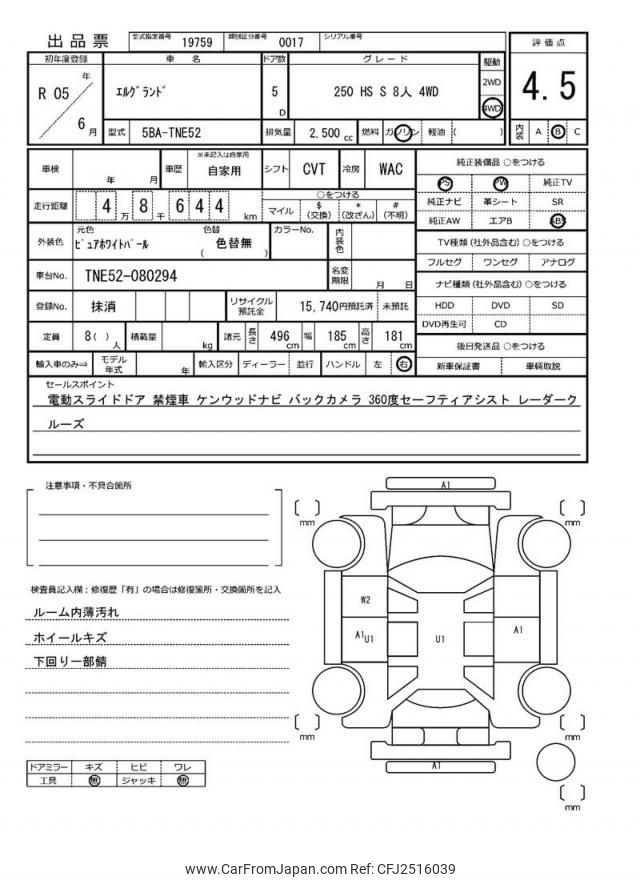 出品票
型式指定番号 19759 類別区分番号 0017 シリアル番号
初年度登録 車名 ドア数 グレード 駆動 評価点
R 05 年 6 月
ｴﾙｸﾞﾗﾝﾄﾞ 5 D 250 HS S 8人 4WD 2WD 4WD 4.5
型式 5BA-TNE52 排気量 2,500 cc 燃料 ガソリン 軽油 ( ) 内装 A B C
車検 年 月 車歴 ※未記入は自家用 自家用 シフト CVT 冷房 WAC
走行距離 4 万 8 千 6 4 4 km
○をつける
マイル $ (交換) * (改ざん) # (不明)
外装色 元色 ﾋﾟｭｱﾎﾜｲﾄﾊﾟｰﾙ 色替 ( 色替無 ) カラーNo. 内装色
車台No. TNE52-080294 名変期限 月 日
登録No. 抹消 リサイクル預託金 15,740円預託済 未預託
定員 8( ) 人 積載量 kg 諸元 長さ 496 cm 幅 185 cm 高さ 181 cm
輸入車のみ⇒ モデル年式 年 輸入区分 ディーラー 並行 ハンドル 左 右
純正装備品 ○をつける
PS PW 純正TV
純正ナビ 革シート SR
純正AW エアB ABS
TV種類 (社外品含む) ○をつける
フルセグ ワンセグ アナログ
ナビ種類 (社外品含む) ○をつける
HDD DVD SD
DVD再生可 CD
後日発送品 ○をつける
新車保証書 車輌取説
セールスポイント
電動スライドドア 禁煙車 ケンウッドナビ バックカメラ 360度セーフティアシスト レーダーク
ルーズ
注意事項・不具合箇所
検査員記入欄：修復歴「有」の場合は修復箇所・交換箇所を記入
ルーム内薄汚れ
ホイールキズ
下回り一部錆
ドアミラー キズ ヒビ ワレ
工具 無 ジャッキ 無
A1
mm
mm
W2
A1 U1
U1
A1
mm
mm
A1
mm
www.CarFromJapan.com Ref: CFJ2516039